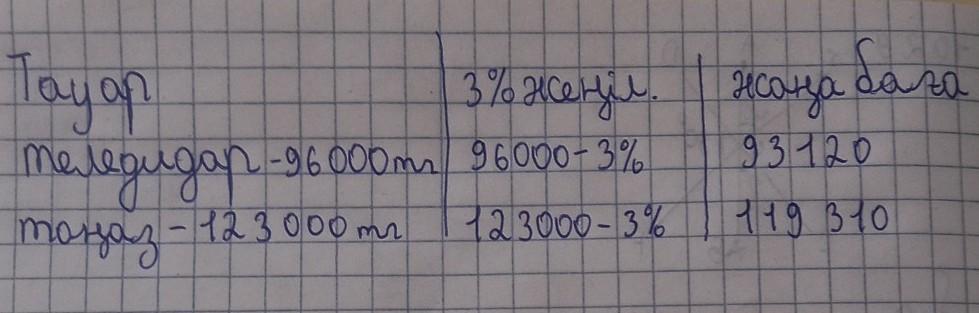 Тауар 3% жеңіл. жаңа баға
теледидар - 96000тг 96000 - 3% 93120
тоңаз - 123000тг 123000 - 3% 119 310